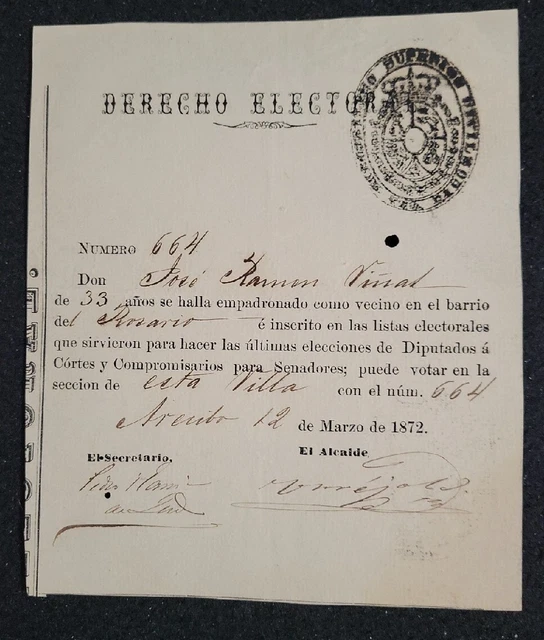 DERECHO ELECTORAL
NUMERO 664
Don José Ramon Viñas
de 33 años se halla empadronado como vecino en el barrio
del Rosario é inscrito en las listas electorales
que sirvieron para hacer las últimas elecciones de Diputados á
Córtes y Compromisarios para Senadores; puede votar en la
seccion de esta Villa con el núm. 664
Arecibo 12 de Marzo de 1872.
El Secretario, El Alcalde